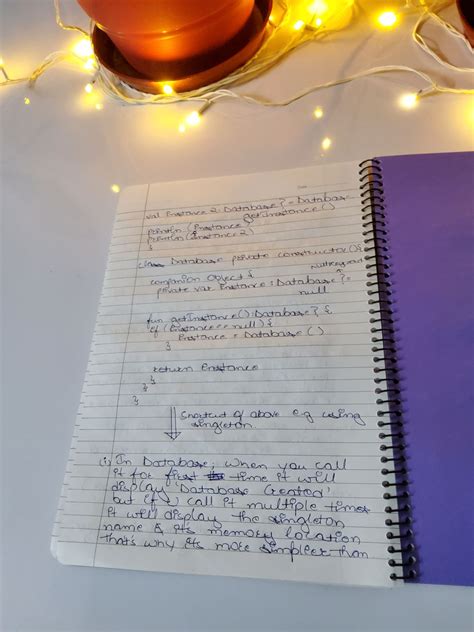 val Instance 2: Database? = Database.
getInstance()
println (Instance)
println (Instance2)
}
class Database private constructor(){
companion Object {
private var Instance: Database? =
null
fun getInstance(): Database? {
if (Instance == null) {
Instance = Database ()
}
return Instance
}
}
}
Shortcut of above e.g using
singleton.
(i) In Database, when you call
it for first time it will
display 'Database Created'
but if u call it multiple times
it will display the singleton
name & its memory location
that's why its more simpleer than